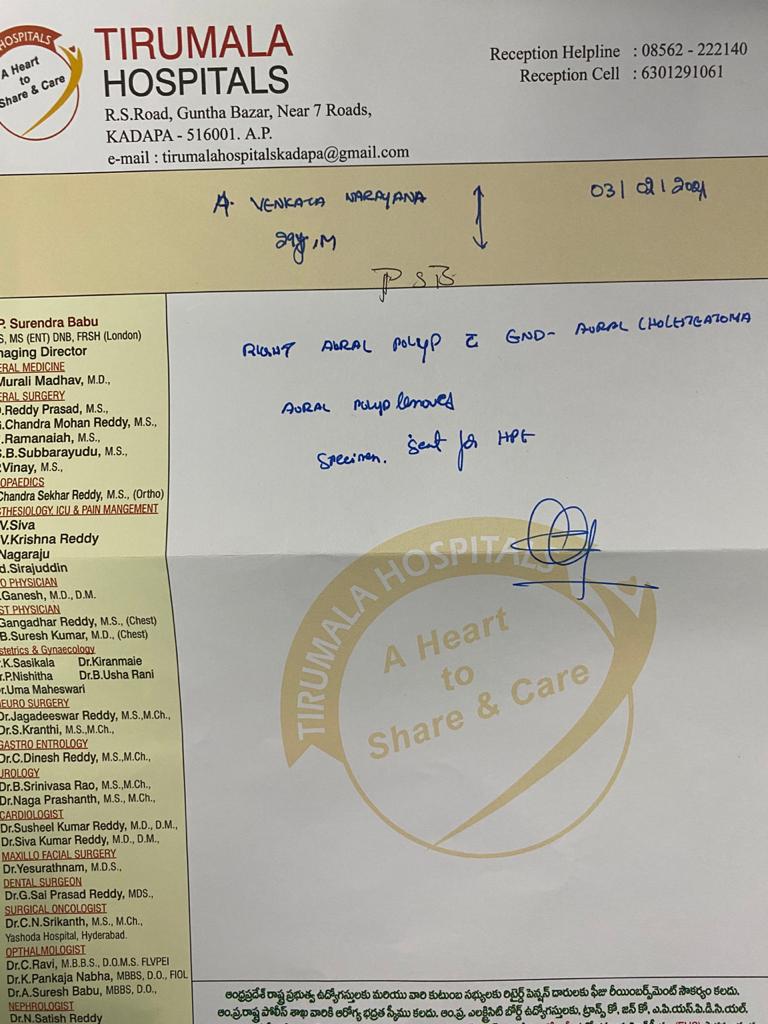 HOSPITALS
A Heart
to
Share & Care
TIRUMALA
HOSPITALS
R.S.Road, Guntha Bazar, Near 7 Roads,
KADAPA - 516001. A.P.
e-mail : tirumalahospitalskadapa@gmail.com
Reception Helpline : 08562 - 222140
Reception Cell : 6301291061
A. VENKATA NARAYANA
29y, M
03/02/2021
PSB
RIGHT AURAL POLYP c̄ END- AURAL CHOLESTEATOMA
AURAL POLYP removed
Specimen. Sent for HPE
P. Surendra Babu
S, MS (ENT) DNB, FRSH (London)
naging Director
ERAL MEDICINE
Murali Madhav, M.D.,
ERAL SURGERY
.Reddy Prasad, M.S.,
.Chandra Mohan Reddy, M.S.,
.Ramanaiah, M.S.,
.B.Subbarayudu, M.S.,
Vinay, M.S.,
OPAEDICS
Chandra Sekhar Reddy, M.S., (Ortho)
THESIOLOGY, ICU & PAIN MANGEMENT
V.Siva
V.Krishna Reddy
Nagaraju
d.Sirajuddin
O PHYSICIAN
.Ganesh, M.D., D.M.
ST PHYSICIAN
Gangadhar Reddy, M.S., (Chest)
B.Suresh Kumar, M.D., (Chest)
stetrics & Gynaecology
.K.Sasikala Dr.Kiranmaie
r.P.Nishitha Dr.B.Usha Rani
r.Uma Maheswari
NEURO SURGERY
Dr.Jagadeeswar Reddy, M.S.,M.Ch.,
Dr.S.Kranthi, M.S.,M.Ch.,
GASTRO ENTROLOGY
Dr.C.Dinesh Reddy, M.S.,M.Ch.,
UROLOGY
Dr.B.Srinivasa Rao, M.S.,M.Ch.,
Dr.Naga Prashanth, M.S., M.Ch.,
CARDIOLOGIST
Dr.Susheel Kumar Reddy, M.D., D.M.,
Dr.Siva Kumar Reddy, M.D., D.M.,
MAXILLO FACIAL SURGERY
Dr.Yesurathnam, M.D.S.,
DENTAL SURGEON
Dr.G.Sai Prasad Reddy, MDS.,
SURGICAL ONCOLOGIST
Dr.C.N.Srikanth, M.S., M.Ch.,
Yashoda Hospital, Hyderabad.
OPTHALMOLOGIST
Dr.C.Ravi, M.B.B.S., D.O.M.S. FLVPEI
Dr.K.Pankaja Nabha, MBBS, D.O., FIOL
Dr.A.Suresh Babu, MBBS, D.O.,
NEPHROLOGIST
Dr.N.Satish Reddy
TIRUMALA HOSPITALS
A Heart
to
Share & Care
ఆంధ్రప్రదేశ్ రాష్ట్ర ప్రభుత్వ ఉద్యోగస్తులకు మరియు వారి కుటుంబ సభ్యులకు రిటైర్డ్ పెన్షన్ దారులకు ఫీజు రీయింబర్స్‌మెంట్ సౌకర్యం కలదు.
ఆం.ప్ర.రాష్ట్ర పోలీస్ శాఖ వారికి ఆరోగ్య భద్రత స్కీము కలదు. ఆం.ప్ర. ఎలక్ట్రిసిటి బోర్డ్ ఉద్యోగస్తులకు, ట్రాన్స్ కో, జెన్ కో, ఎ.పి.యస్.పి.డి.సి.యల్.